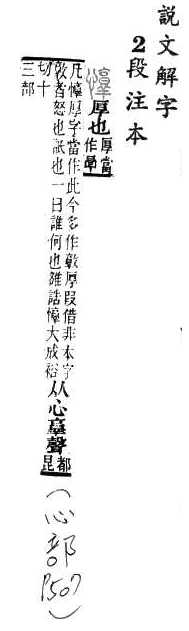 說文解字
2段注本
憞厚也厚當
作㫗
凡惇厚字當作此今多作敦厚叚借非本字
敦者怒也詆也一曰誰何也雒誥惇大成裕
从心𦎫聲都
昆
切十
三部
(心部P507)